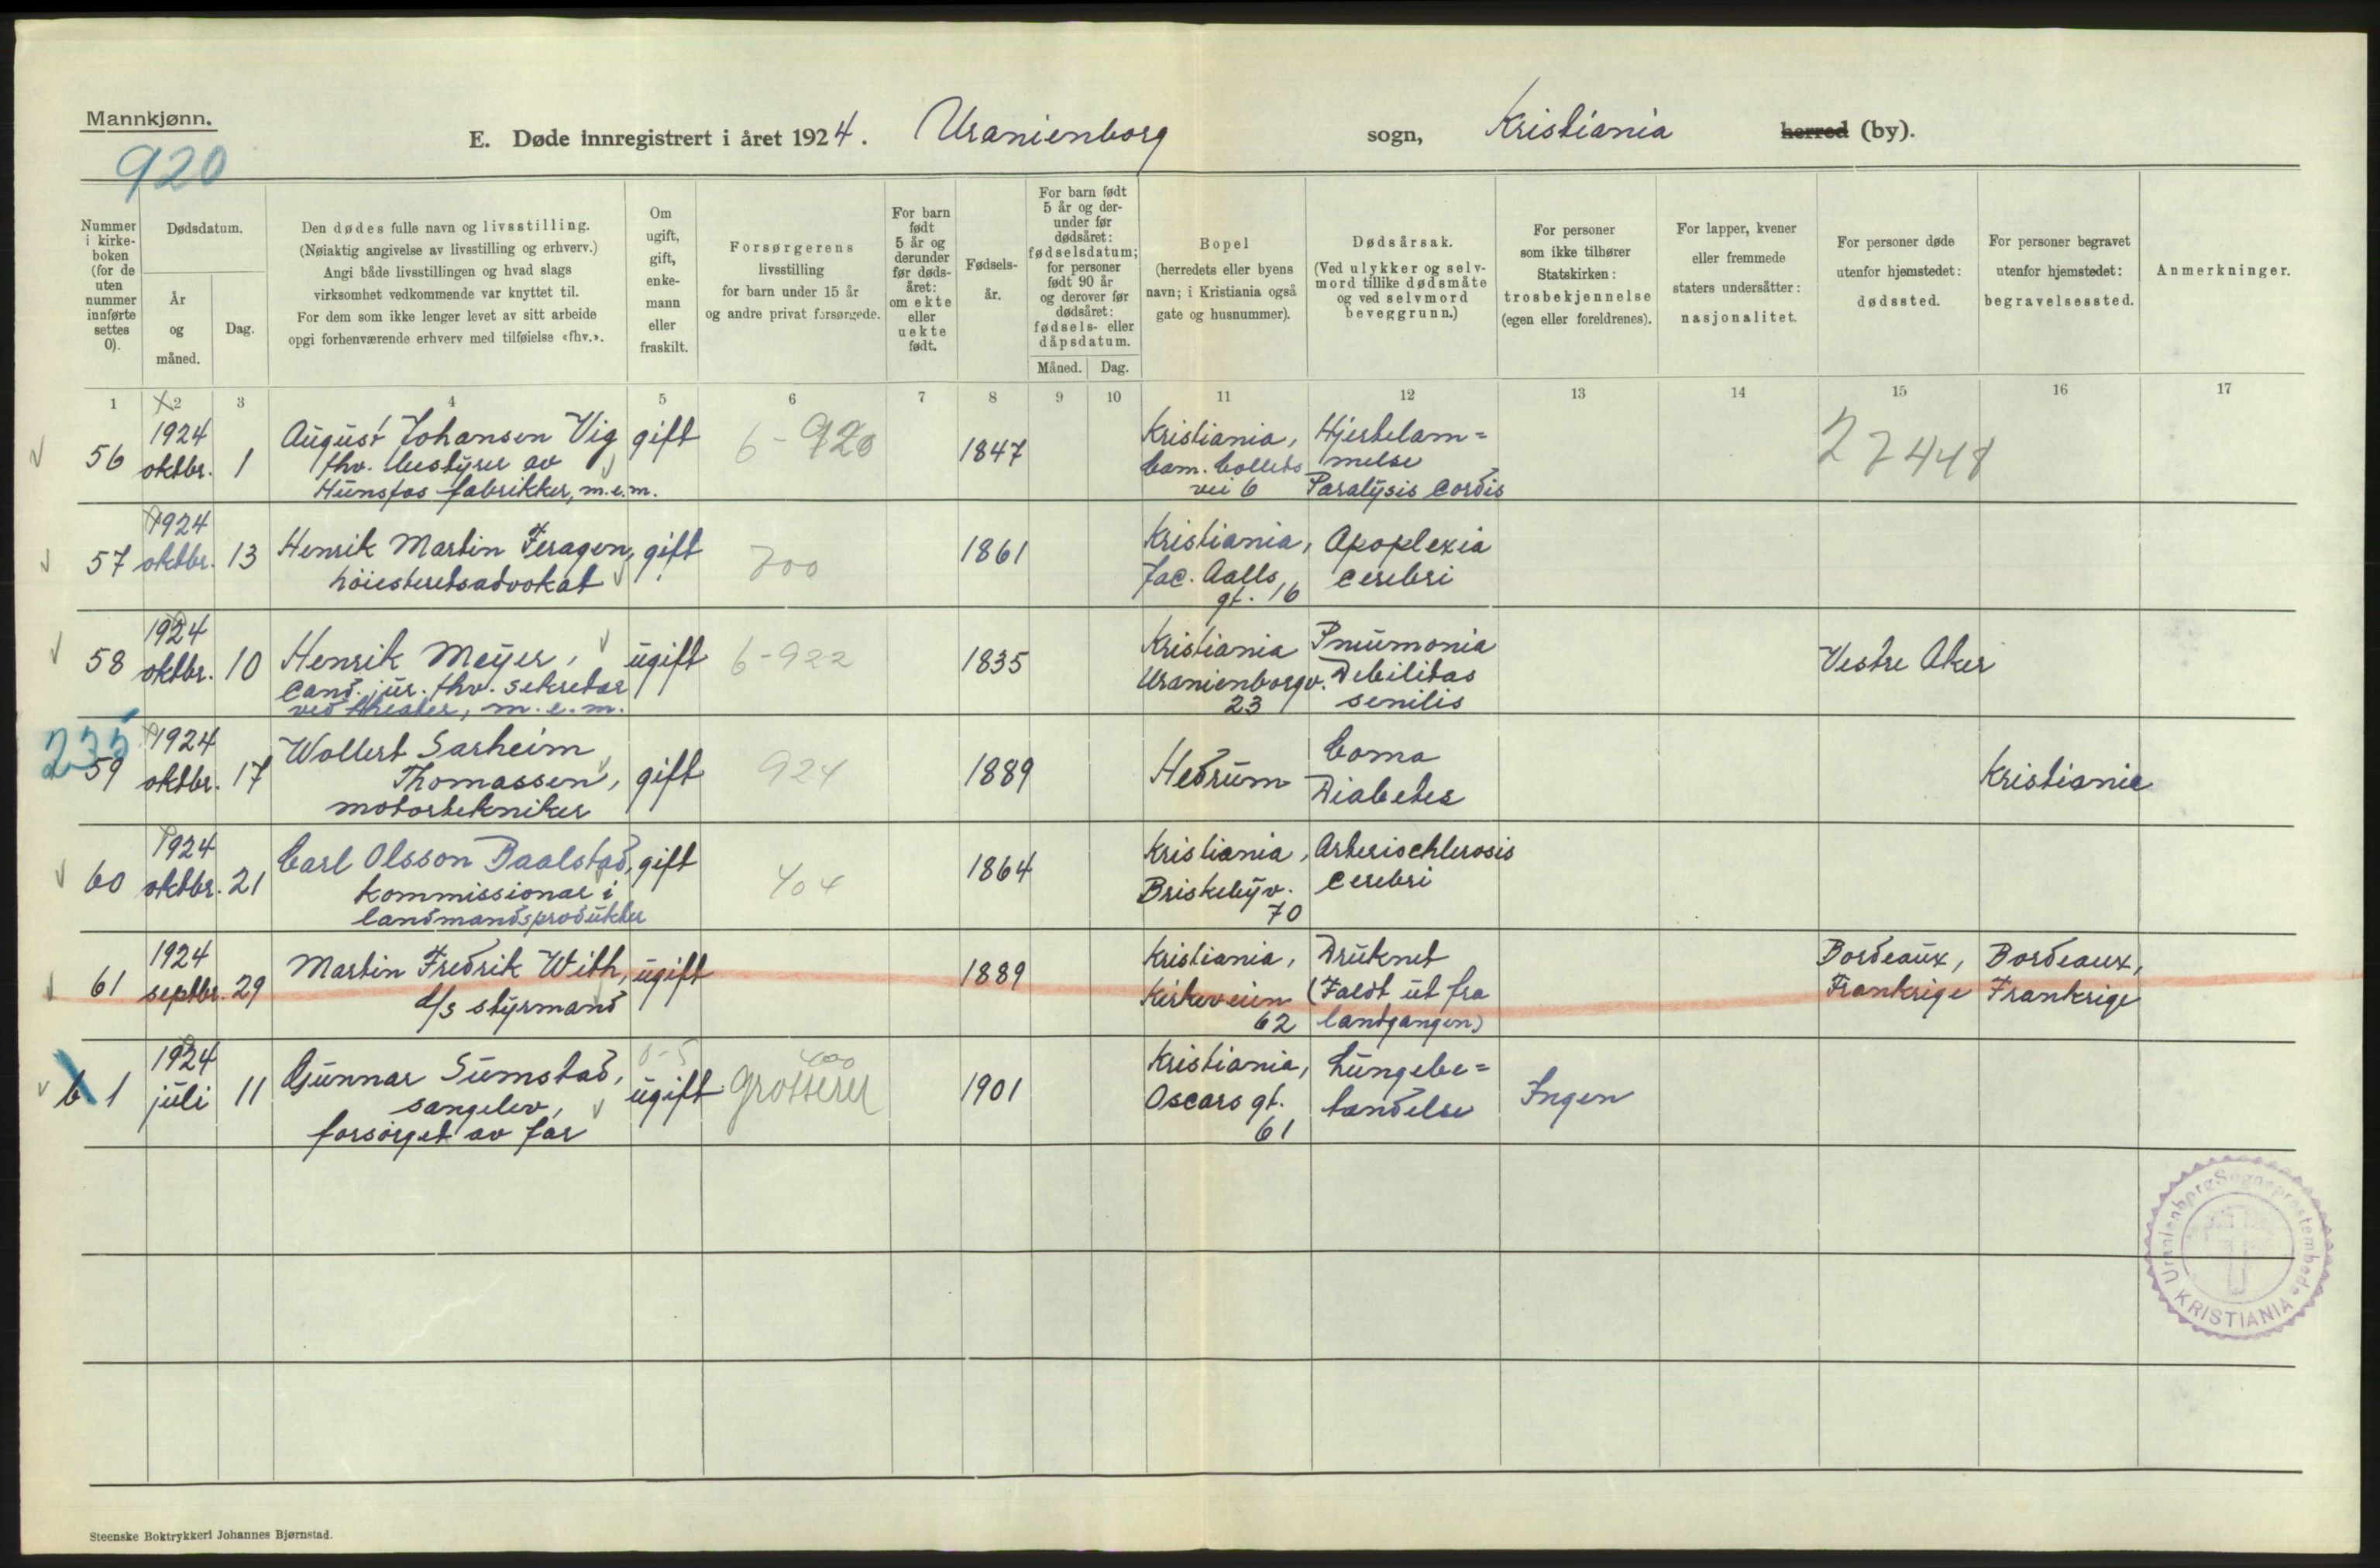 Mannkjønn.
920
E. Døde innregistrert i året 1924. Uranienborg sogn, Kristiania herred (by).
Nummer
i kirke-
boken
(for de
uten
nummer
innførte
settes
0).
Dødsdatum.
År
og
måned.
Dag.
Den dødes fulle navn og livsstilling.
(Nøiaktig angivelse av livsstilling og erhverv.)
Angi både livsstillingen og hvad slags
virksomhet vedkommende var knyttet til.
For dem som ikke lenger levet av sitt arbeide
opgi forhenværende erhverv med tilføielse «fhv.».
Om
ugift,
gift,
enke-
mann
eller
fraskilt.
Forsørgerens
livsstilling
for barn under 15 år
og andre privat forsørgede.
For barn
født
5 år og
derunder
før døds-
året:
om ekte
eller
uekte
født.
Fødsels-
år.
For barn født
5 år og der-
under før
dødsåret:
fødselsdatum;
for personer
født 90 år
og derover før
dødsåret:
fødsels- eller
dåpsdatum.
Måned. Dag.
Bopel
(herredets eller byens
navn; i Kristiania også
gate og husnummer).
Dødsårsak.
(Ved ulykker og selv-
mord tillike dødsmåte
og ved selvmord
beveggrunn.)
For personer
som ikke tilhører
Statskirken:
trosbekjennelse
(egen eller foreldrenes).
For lapper, kvener
eller fremmede
staters undersåtter:
nasjonalitet.
For personer døde
utenfor hjemstedet:
dødssted.
For personer begravet
utenfor hjemstedet:
begravelsessted.
Anmerkninger.
1 2 3 4 5 6 7 8 9 10 11 12 13 14 15 16 17
56
1924
oktbr.
1
August Johansen Vig
fhv. bestyrer av
Hunsfos fabrikker, m.e.m.
gift
6-920
1847
Kristiania,
Cam. Colletts
vei 6
Hjertelam=
melse
Paralysis cordis
27448
57
1924
oktbr.
13
Henrik Martin Feragen,
høiesteretsadvokat
gift
700
1861
Kristiania,
Jac. Aalls
gt. 16
Apoplexia
cerebri
58
1924
oktbr.
10
Henrik Meyer,
Cand. jur. fhv. sekretær
ved theater, m.e.m.
ugift
6-922
1835
Kristiania
Uranienborgv.
23
Pneumonia
Debilitas
senilis
Vestre Aker
235
59
1924
oktbr.
17
Wollert Sarheim
Thomassen,
motortekniker
gift
924
1889
Hedrum
Coma
Diabetes
Kristiania
60
1924
oktbr.
21
Carl Olsson Baalstad,
kommissionær i
landmandsprodukter
gift
404
1864
Kristiania,
Briskebyv.
70
Arteriochlerosis
cerebri
61
1924
septbr.
29
Martin Fredrik With,
d/s styrmand
ugift
1889
Kristiania,
Kirkeveien
62
Druknet
(Faldt ut fra
landgangen)
Bordeaux,
Frankrige
Bordeaux,
Frankrige
6 1
1924
juli
11
Gunnar Sumstad,
sangelev,
forsørget av far
6-5
ugift
400
Grosserer
1901
Kristiania,
Oscars gt.
61
Lungebe=
tændelse
Ingen
Uranienborg Sogneprestembede
KRISTIANIA
Steenske Boktrykkeri Johannes Bjørnstad.